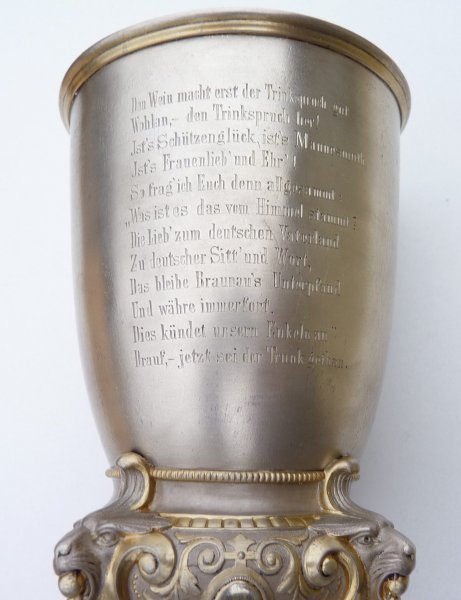 Den Wein macht erst der Trinkspruch gut
Wohlan,- den Trinkspruch her!
Jst's Schützenglück, ist's Mannesmuth
Jst's Frauenlieb' und Ehr'?
So frag' ich Euch denn allgesammt:
„Was ist es das vom Himmel stammt?
Die Lieb' zum deutschen Vaterland
Zu deutscher Sitt' und Wort,
Das bleibe Braunau's Unterpfand
Und währe immerfort.
Dies kündet unsern Enkeln an"
Drauf,- jetzt sei der Trunk